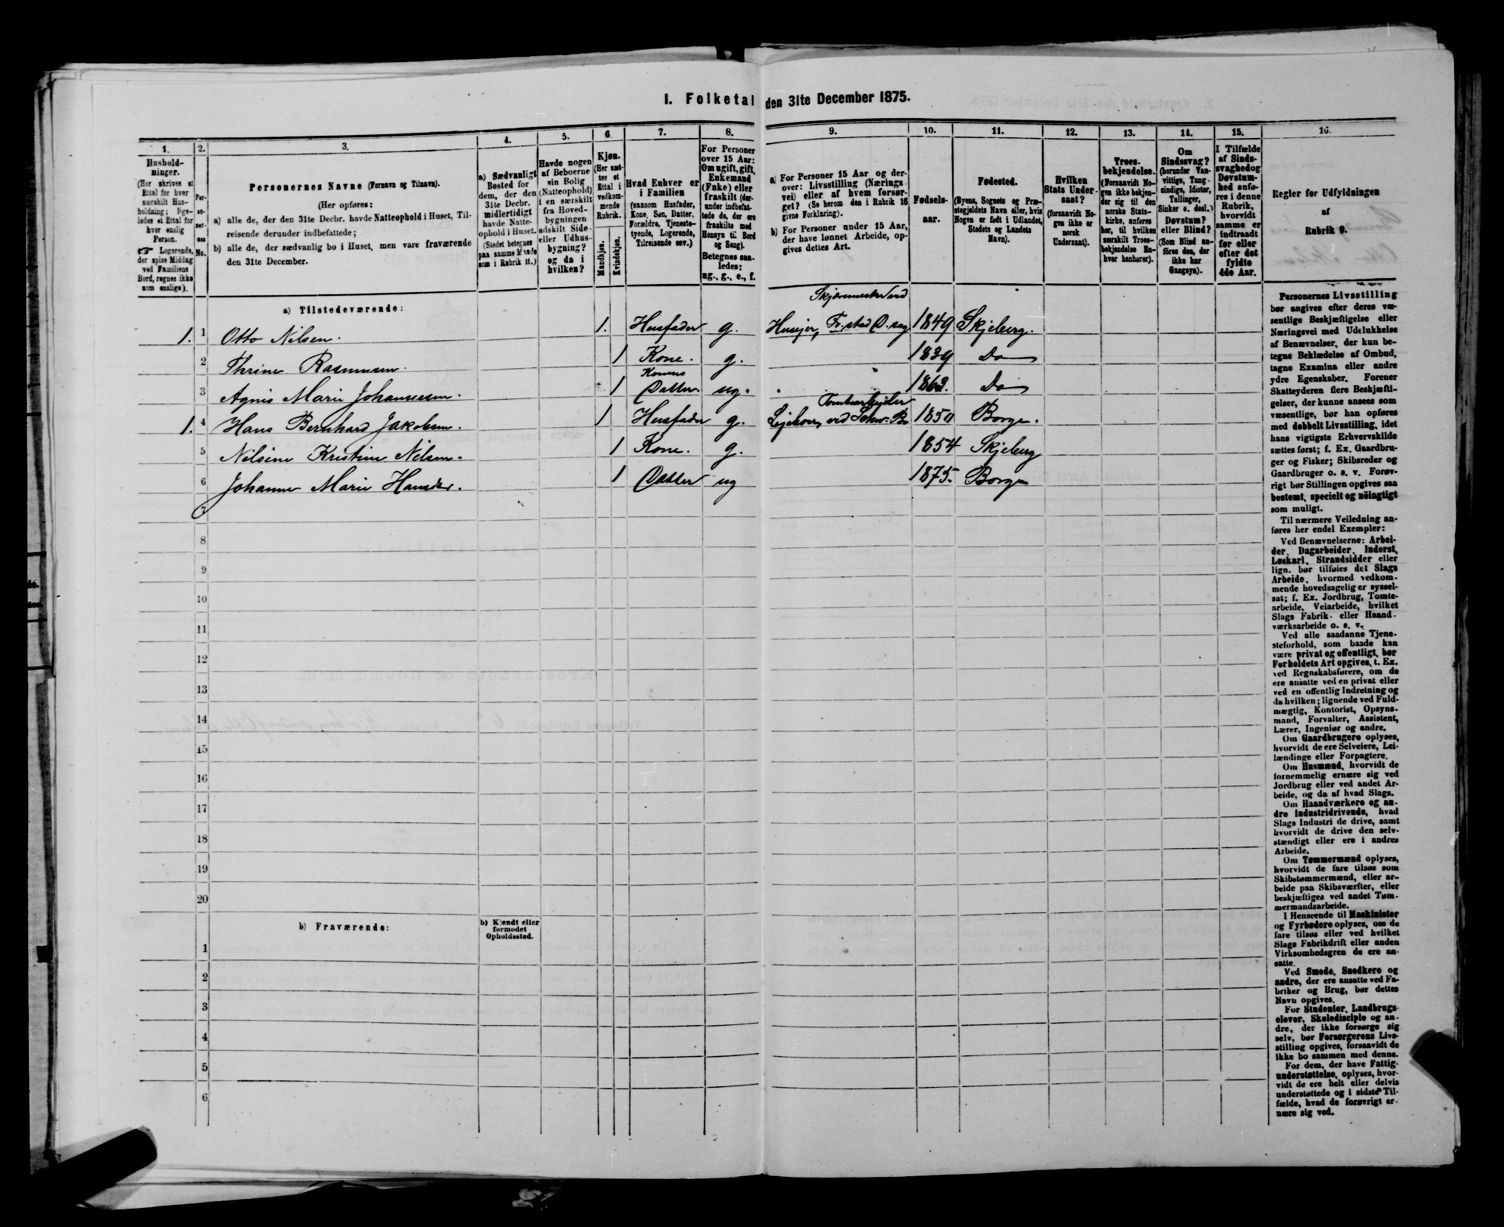 I. Folketal den 31te December 1875.
1. 2. 3. 4. 5. 6. 7. 8. 9. 10. 11. 12. 13. 14. 15. 16.
Hushold-
ninger.
(Her skrives et
Ettal for hver
særskilt Hus-
holdning; lige-
ledes et Ettal for
hver enslig
Person.
☞ Logerende,
der spise Middag
ved Familiens
Bord, regnes ikke
som enslige).
Per-
so-
ner-
nes
No.
Personernes Navne (Fornavn og Tilnavn).
(Her opføres:
a) alle de, der den 31te Decbr. havde Natteophold i Huset, Til-
reisende derunder indbefattede;
b) alle de, der sædvanlig bo i Huset, men vare fraværende
den 31te December.
a) Sædvanligt
Bosted for
dem, der den
31te Decbr.
midlertidigt
havde Natte-
ophold i Huset.
(Stedet betegnes
paa samme Maade
som i Rubrik 11.)
Havde nogen
af Beboerne
sin Bolig
(Natteophold)
i en særskilt
fra Hoved-
bygningen
adskilt Side-
eller Udhus-
bygning?
og da i
hvilken?
Kjøn.
(Her sæt-
tes et
Ettal i
vedkom-
mende
Rubrik.
Mandkjøn.
Kvindekjøn.
Hvad Enhver er
i Familien
(saasom Husfader,
Kone, Søn, Datter,
Forældre, Tjeneste-
tyende, Logerende,
Tilreisende osv.)
For Personer
over 15 Aar:
Om ugift, gift,
Enkemand
(Enke) eller
fraskilt (der-
under indbefat-
tede de, der ere
fraskilte med
Hensyn til Bord
og Seng).
Betegnes saa-
ledes:
ug., g., e., f.
a) For Personer 15 Aar og der-
over: Livsstilling (Nærings-
vei) eller af hvem forsør-
get? (Se herom den i Rubrik 16
givne Forklaring).
b) For Personer under 15 Aar,
der have lønnet Arbeide, op-
gives dettes Art.
Fødsels-
aar.
Fødested.
(Byens, Sognets og Præ-
stegjeldets Navn eller, hvis
Nogen er født i Udlandet,
Stedets og Landets
Navn).
Hvilken
Stats Under-
saat?
(forsaavidt No-
gen ikke er
norsk
Undersaat).
Troes-
bekjendelse.
(Forsaavidt No-
gen ikke bekjen-
der sig til den
norske Stats-
kirke, anføres
her, til hvilken
særskilt Troes-
bekjendelse No-
gen henhører).
Om
Sindssvag?
(herunder Van-
vittige, Tung-
sindige, Idioter,
Tullinger,
Sinker o. desl.)
Døvstum?
eller Blind?
(Som Blind an-
føres den, der
ikke har
Gangsyn).
I Tilfælde
af Sinds-
svaghed og
Døvstum-
hed anfø-
res i denne
Rubrik,
hvorvidt
samme er
indtraadt
før eller
efter det
fyldte
4de Aar.
Regler før Udfyldningen
af
Rubrik 9.
a) Tilstedeværende:
1. 1 Otto Nilsen. 1. Husfader g. Husejer, Fr.stad D.sag 1849 Skjeberg.
2 Thrine Rasmussen. 1 Kone. g. 1839 Do
3 Agnis Marie Johannesen. 1 Konens Datter. ug. 1862. Do
1. 4 Hans Bernhard Jakobsen. 1 Husfader g. Tomtearbejder 1850 Borge.
5 Nilsine Kristine Nilsen. 1 Kone. g. 1854 Skjeberg
6 Johanne Marie Hansdr. 1 Datter ug 1875. Borge
7
8
9
10
11
12
13
14
15
16
17
18
19
20
b) Fraværende:
b) Kjendt eller
formodet
Opholdssted.
1
2
3
4
5
6
Personernes Livsstilling
bør angives efter deres væ-
sentlige Beskjæftigelse eller
Næringsvei med Udelukkelse
af Benævnelser, der kun be-
tegne Beklædelse af Ombud,
tagne Examina eller andre
ydre Egenskaber. Forener
Skatteyderen flere Beskjæfti-
gelser, der kunne ansees som
væsentlige, bør han opføres
med dobbelt Livsstilling, idet
hans vigtigste Erhvervskilde
sættes først; f. Ex. Gaardbru-
ger og Fisker; Skibsreder og
Gaardbruger o. s. v. Forøv-
rigt bør Stillingen opgives saa
bestemt, specielt og nöiagtigt
som muligt.
Til nærmere Veiledning an-
føres her endel Exempler:
Ved Benævnelserne: Arbei-
der, Dagarbeider, Inderst,
Løskarl, Strandsidder eller
lign. bør tilføies det Slags
Arbeide, hvormed vedkom-
mende hovedsagelig er syssel-
sat; f. Ex. Jordbrug, Tomte-
arbeide, Veiarbeide, hvilket
Slags Fabrik- eller Haand-
værksarbeide o. s. v.
Ved alle saadanne Tjene-
steforhold, som baade kan
være privat og offentligt, bør
Forholdets Art opgives, t. Ex.
ved Regnskabsførere, om de
ere ansatte ved en privat eller
ved en offentlig Indretning og
da hvilken; lignende ved Fuld-
mægtig, Kontorist, Opsyns-
mand, Forvalter, Assistent,
Lærer, Ingeniør og andre.
Om Gaardbrugere oplyses,
hvorvidt de ere Selveiere, Lei-
lændinge eller Forpagtere.
Om Husmænd, hvorvidt de
fornemmelig ernære sig ved
Jordbrug eller ved andet Ar-
beide, og da af hvad Slags.
Om Haandværkere og an-
dre Industridrivende, hvad
Slags Industri de drive, samt
hvorvidt de drive den selv-
stændigt eller ere i andres
Arbeide.
Om Tømmermænd oplyses,
hvorvidt de fare tilsøs som
Skibstømmermænd, eller ar-
beide paa Skibsværfter, eller
beskjæftiges ved andet Tøm-
mermandsarbeide.
I Henseende til Maskinister
og Fyrbødere oplyses, om de
fare tilsøs eller ved hvilket
Slags Fabrikdrift eller anden
Virksomhedsgren de ere an-
satte.
Ved Smede, Snedkere og
andre, der ere ansatte ved Fa-
briker og Brug, bør dettes
Navn opgives.
For Studenter, Landbrugs-
elever, Skoledisciple og an-
dre, der ikke forsørge sig
selv, bør Forsørgerens Livs-
stilling opgives, forsaavidt de
ikke bo sammen med denne.
For dem, der have Fattig-
understøttelse, oplyses, hvor-
vidt de ere helt eller delvis
understøttede og i sidste Til-
fælde, hvad de forøvrigt er-
nære sig ved.